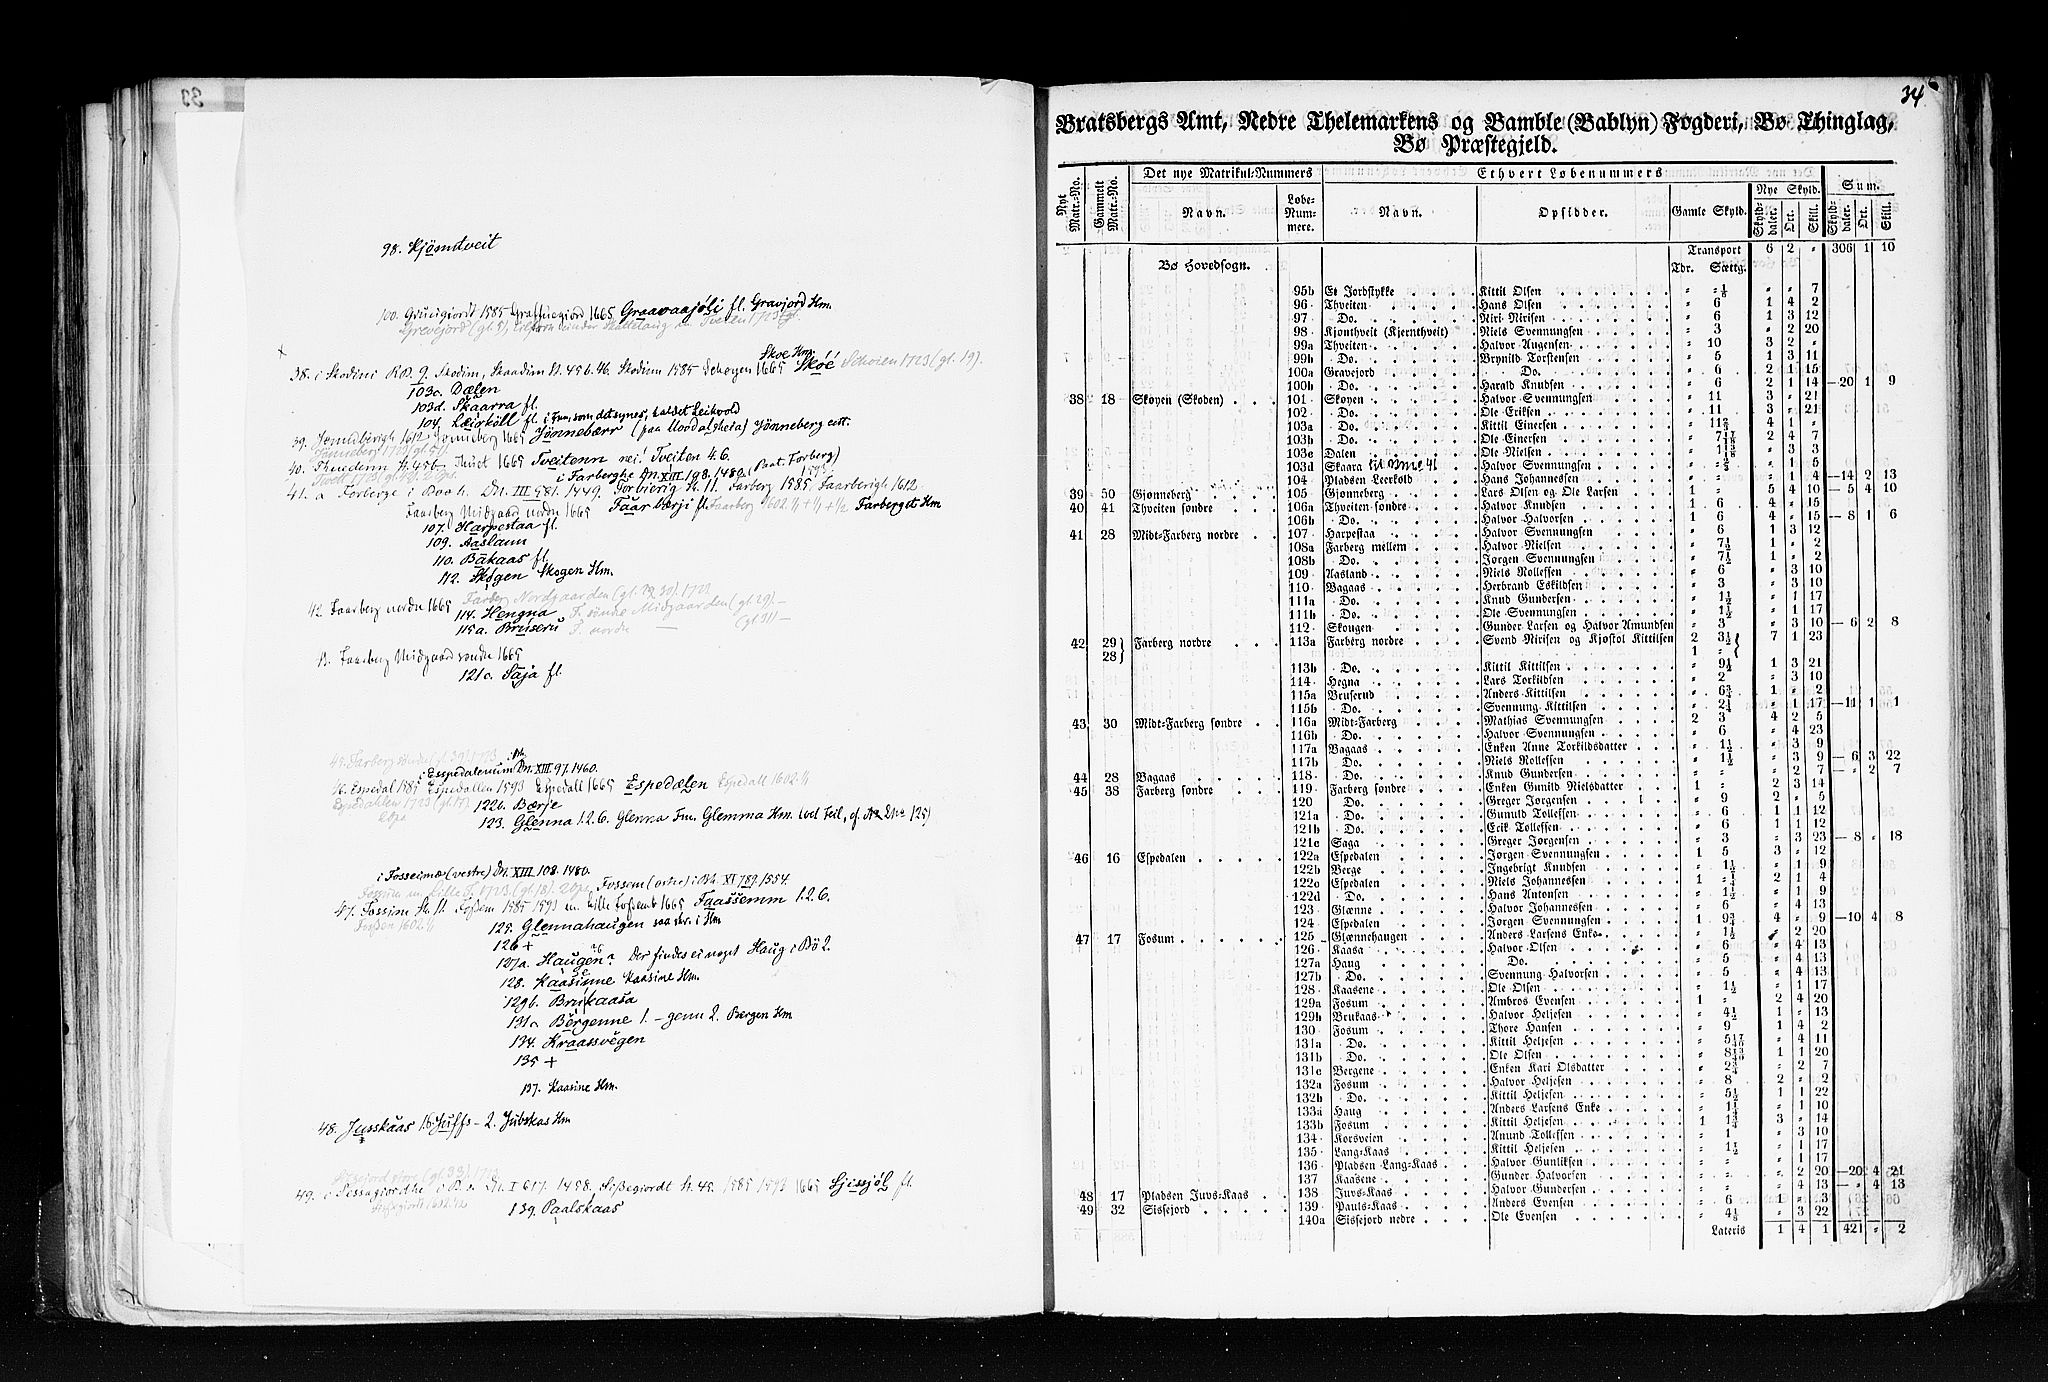 98. Kjömtveit
100. Gruugiordt 1585 Graffuegiord 1665 Graavaajöli fl. Gravjord Hm.
Skoe Hm.
38. i Skodini RB. 9. Skodim, Skaadim St. 456. 46. Skodium 1585 Schoyen 1665 Skóé Schoien 1723 (gl. 19).
103c. Dælen
103d. Skaarra fl.
104. Læirköll fl. i Fm., som det synes, kaldet Leikvold
39. Jönneberg 1665 Jönnebærr (paa Mordalsheia) Jönneberg ctt.
40. Thuedenn St. 456. Thuet 1665 Tveitenn nei! Tveiten 4.6.
i Farberghe DN. XIII 108. 1480. (Paat. Forberg)
41. a Forberge i Boa h. DN. III 581. 1449. Forbierig St. 11. Farberg 1585 Faarberigh 1612
Faarberg Midgaard nordre 1665 Faarbærji fl. Faarberg 1602 1/1 + 1/1 + 1/2 Farberget Hm
107. Harpestaa fl.
109. Aaslann
110. Bákaas fl.
112. Skógen Skogen Hm.
Farberg Nordgaarden (gl. 29, 30). 1723
42. Faarberg nordre 1665
114. Hengna F. söndre Midgaarden (gl. 29) —
115a. Bruseru F. nordre (gl. 31) —
43. Faarberg Midgaard söndre 1665
121c. Saja fl.
45. Farberg söndre (gl. 39). 1723
i Espedalenum DN. XIII. 97. 1460.
46. Espedal 1585 Espedallen 1593 Espedall 1665 Espedælen Espedall 1602. 1/1
Espedahlen 1723 (gl. 17)
122b. Bærje
123. Glenna 1.2.6. Glenna Fm. Glemma Hm. (vel Feil, cf. No 125)
i Fosseimæ (vestre) DN. XIII 108. 1480.
Fossum (vestre) i DN. XI 789. 1554.
47. Fossim St. 11. Fossem 1585 1593 m. lille Fossemb 1665 Faassemm 1.2.6.
125. Glennahaugen saa skr. i Hm
126 +
127a. Haugen? Der findes ei noget Haug i Bö 2.
128. Kaasinne Kaasine Hm.
129b. Brúkaasa
131a Börgenne 1. – genn 2. Bergen Hm
134. Kraassvegen
135 +
137. Kaasine Hm.
48. Jusskaas 1.6. Juffs – 2. Jubskas Hm
49. i Sessagiordhe i B.s. DN. I 617. 1458. Sissegiordt St. 45. 1585 1593 1665 Sjissjöl fl.
139. Paalskaas
34
Bratsbergs Amt, Nedre Thelemarkens og Bamble (Bablyn) Fogderi, Bø Thinglag,
Bø Præstegjeld.
Nyt Matr.-No. Gammelt Matr.-No. Det nye Matrikul-Nummers Ethvert Løbenummers
Navn. Løbe-Nummere. Navn. Opsidder. Gamle Skyld. Nye Skyld. Sum.
Skylddaler. Ort. Skill. Skylddaler. Ort. Skill.
Transport 6 2 " 306 1 10
Bø Hovedsogn. Tdr. Sættg.
95b Et Jordstykke Kittil Olsen " 1/8 " " 7
96 Thveiten Hans Olsen " 6 1 4 2
97 Do. Niri Nirisen " 6 1 3 12
98 Kjonthveit (Kjernthveit) Niels Svennungsen " 3 " 2 20
99a Thveiten Halvor Augensen " 10 3 2 "
99b Do. Brynild Torstensen " 5 1 3 11
100a Gravejord Do. " 6 2 1 15
100b Do. Harald Knudsen " 6 2 1 14 — 20 1 9
38 18 Skoyen (Skoden) 101 Skoyen Halvor Svennungsen " 11 3 " 21
102 Do. Ole Eriksen " 11 3 " 21
103a Do. Kittil Einersen " 11 4 1 "
103b Do. Ole Einersen " 7 2 4 7
103c Dalen Ole Nielsen " 1 " 3 3
103d Skaara til Bme 41 Halvor Svennungsen " " 1 5
104 Pladsen Leerkold Hans Johannessen " " " 1 4 — 14 2 13
39 50 Gjønneberg 105 Gjønneberg Lars Olsen og Ole Larsen 1 " 5 4 10 — 5 4 10
40 41 Thveiten søndre 106a Thveiten søndre Halvor Knudsen 1 6 4 " 15
106b Do. Halvor Halvorsen 1 6 4 " 15 — 8 1 6
41 28 Midt-Farberg nordre 107 Harpestaa Halvor Svennungsen " 6 1 3 12
108a Farberg mellem Halvor Nielsen " 7 1/2 1 " 2
108b Do. Jørgen Svennungsen " 7 1/2 1 " 2
109 Aasland Niels Rollefsen " 6 " 3 10
110 Bagaas Herbrand Eskildsen " 3 " 3 10
111a Do. Knud Gundersen " 1 1/2 " 1 17
111b Do. Ole Svennungsen " 1 1/2 " 1 17
112 Skougen Gunder Larsen og Halvor Amundsen " 3 " 3 10 — 6 2 8
42 29 28 Farberg nordre 113a Farberg nordre Svend Nirisen og Kjøstol Kittilsen 2 3 1/2 1 " 7 1 23
113b Do. Kittil Kittilsen " 9 1/2 1 3 21
114 Hegna Lars Torkildsen " 2 " 3 10
115a Bruserud Anders Kittilsen " 6 3/4 1 " 2
115b Do. Svennung Kittilsen " 2 1/4 " 1 17 — 11 1 1
43 30 Midt-Farberg søndre 116a Midt-Farberg Mathias Svennungsen 2 3 4 2 5
116b Do. Halvor Svennungsen " 6 " 4 23
117a Bagaas Enken Anne Torkildsdatter " 1 1/2 " 3 9
117b Do. Niels Rollefsen " 1 1/2 " 3 9 — 6 3 22
44 28 Bagaas 118 Do. Knud Gundersen " " " 2 7 — " 2 7
45 38 Farberg søndre 119 Farberg søndre Enken Gunild Nielsdatter 1 " 2 3 14
120 Do. Greger Jørgensen " 9 2 " 5
121a Do. Gunuld Tollefsen " 6 1 1 12
121b Do. Erik Tollefsen " 6 1 1 12
121c Saga Greger Jørgensen " 3 " 3 23 — 8 " 18
46 16 Espedalen 122a Espedalen Jørgen Svennungsen 1 5 3 " 12
122b Berge Ingebrigt Knudsen " 1 1/2 " 1 9
122c Espedalen Niels Johannessen 1 1/4 2 1 4
122d Do. Hans Antonsen " 1 1/2 " 1 9
123 Glænne Halvor Johannessen " 6 " 4 13
124 Espedalen Jørgen Svennungsen 1 9 3/4 4 " 9 — 10 4 8
47 17 Fosum 125 Glænnehaugen Anders Larsens Enke " 1 1/2 " 2 20
126 Kaasa Halvor Olsen " 6 " 4 13
127a Haug Do. " 5 " 4 13
127b Do. Svennung Halvorsen " 5 " 4 13
128 Kaasene Ole Olsen " 1 1/2 " 1 17
129a Fosum Ambros Evensen 1 " 2 4 20
129b Brukaas Halvor Heljesen " 4 1/2 1 " 13
130 Fosum Thore Hansen " 9 1 4 2
131a Do. Kittil Heljesen " 5 " 4 11
131b Do. Ole Olsen " 8 1 1 20
131c Bergene Enken Kari Olsdatter " 2 3/4 " 2 7
132a Fosum Halvor Heljesen " 8 2 " 2
132b Do. Kittil Heljesen " 5 1/2 1 1 22
133a Haug Anders Larsens Enke " 1 1/4 " 1 10
133b Fosum Kittil Heljesen 1 1 3/4 3 " 14
134 Korsveien Amund Tollefsen " 1 " 3 10
135 Lang-Kaas Kittil Heljesen " 1 1/2 " 1 17
136 Pladsen Lang-Kaas Halvor Gunliksen " " " 1 17
137 Kaasene Gunder Halvorsen " " " 2 20 — 20 4 21
48 17 Pladsen Juvs-Kaas 138 Juvs-Kaas Halvor Gundersen " " " 4 13 — " 4 13
49 32 Sissejord 139 Pauls-Kaas Anders Evensen " 6 1 " 3
140a Sissejord nedre Ole Evensen " 4 1/8 " 3 22
Lateris 1 4 1 421 " 2